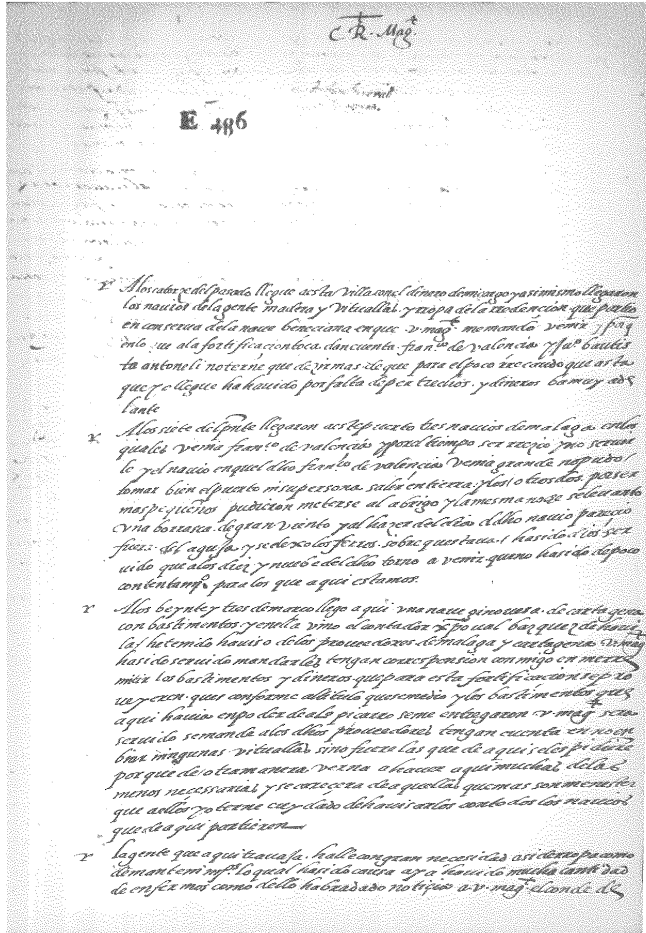 C. R. Mag.t
E 486
A los catorze del pasado llegue a esta villa con el dinero de mi cargo y asimismo llegaron
los navios de la gente madera y vituallas y rropa de la rredencion que partio
en conserva de la nave beneciana en que v. mag.t me mando venir y pa
en lo que a la fortificacion toca dan cuenta fran.co de valencia y Ju.o bautis
ta antoneli no terne que dezir mas de que para el poco rrecaudo que asta
que yo llegue ha havido por falta de pertrechos y dineros ba muy ade
lante
A los siete del p.nte llegaron a este puerto tres navios de malaga en los
quales venia fran.co de valencia y por el tiempo ser rrezio y no servir
le y el navio en que el dho fran.co de valencia venia grande no pudo
tomar bien el puerto ni su persona salir en tierra y los otros dos por ser
mas pequeños pudieron meterse al abrigo y la mesma noche se levanto
una borrasca de gran viento y al hazer del dia el dho navio parecio
fuera del agua y se dexo los ferros sobre que estava ha sido dios ser
vido que a los diez y nuebe del dho torno a venir que no ha sido de poco
contentam.o para los que aqui estamos.
A los beynte y tres de março llego a qui una nave ginovesa de cartagena
con bastimentos y en ella vino el contador xpoval bazquez de havi
la he tenido haviso de los proveedores de malaga y cartagena v. mag.t
ha sido servido mandarles tengan correspension conmigo en me rre
mitir los bastimentos y dineros que para esta fortificacion se pro
veyeren que conforme al titulo que se me dio y los bastimentos que
aqui havia en poder de als piçarro se me entregaron v. mag.t sera
servido se mande a los dhos proveedores tengan cuenta en no en
biar ningunas vituallas sino fuere las que de aqui se les pidiere
porque de otra manera verna a haver aqui muchas de las
menos necessarias y se carecera de aquellas que mas son menester
que a ellos yo terne cuydado de havisarlos con todos los navios
que de aqui partieren
la gente que aqui travaja halle con gran necesidad asi de rropa como
de mantenimi.os lo qual ha sido causa aya havido mucha cantidad
de enfermos como dello habra dado noticia a v. mag.t el conde de